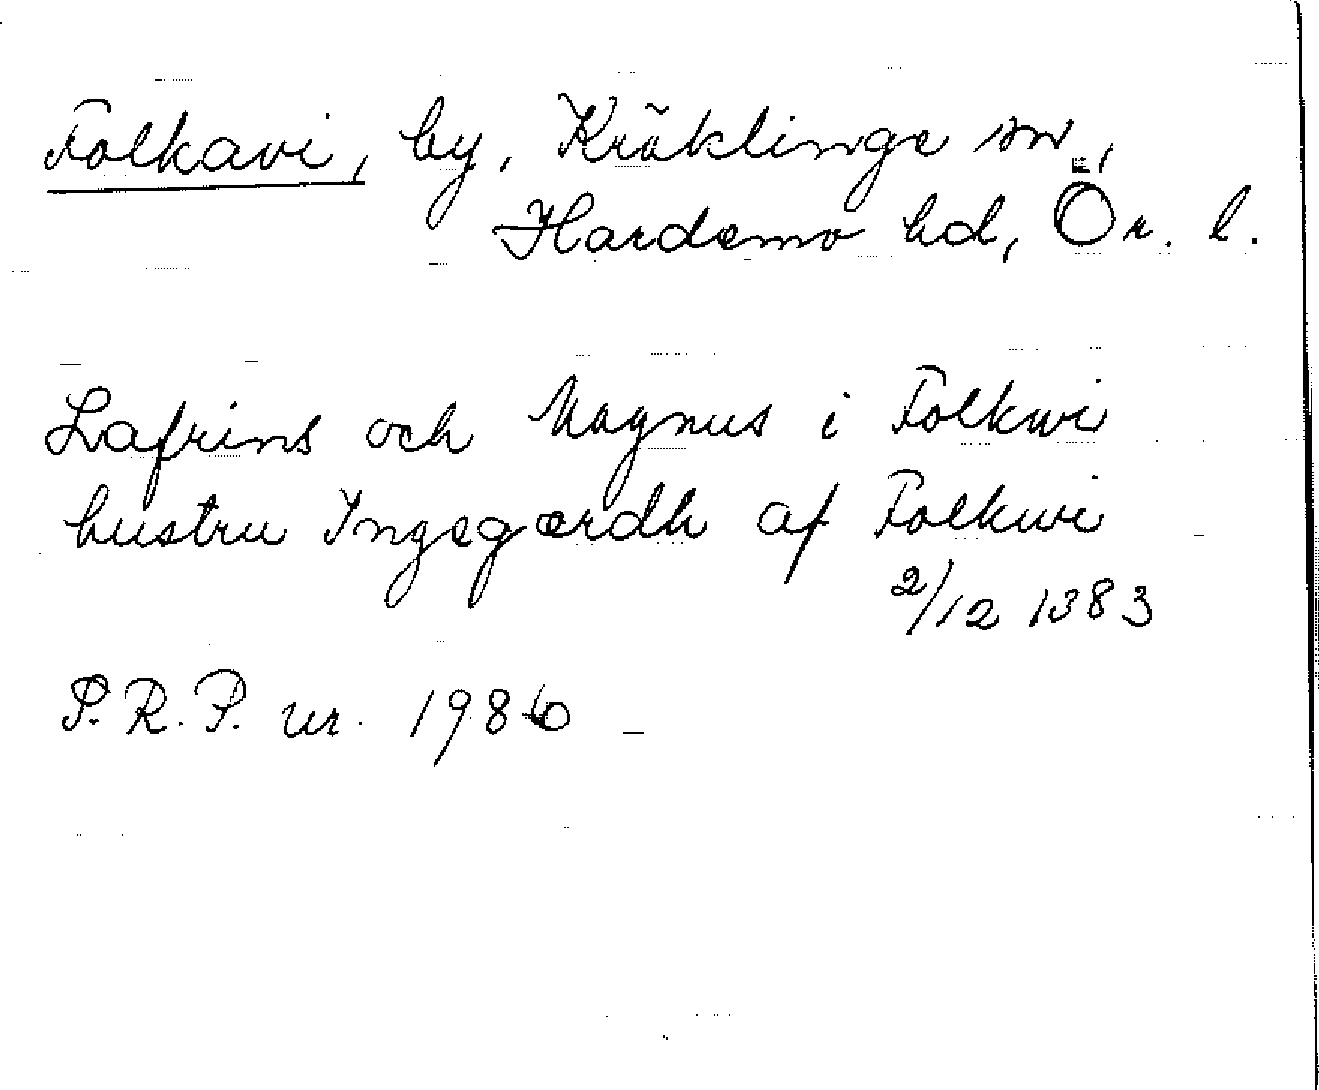 Folkavi, by, Kräklinge sn,
Hardemo hd, Ör. l.
Lafrins och Magnus i Folkwi
hustru Ingegærdh af Folkwi
2/12 1383
S.R.P. nr. 1986